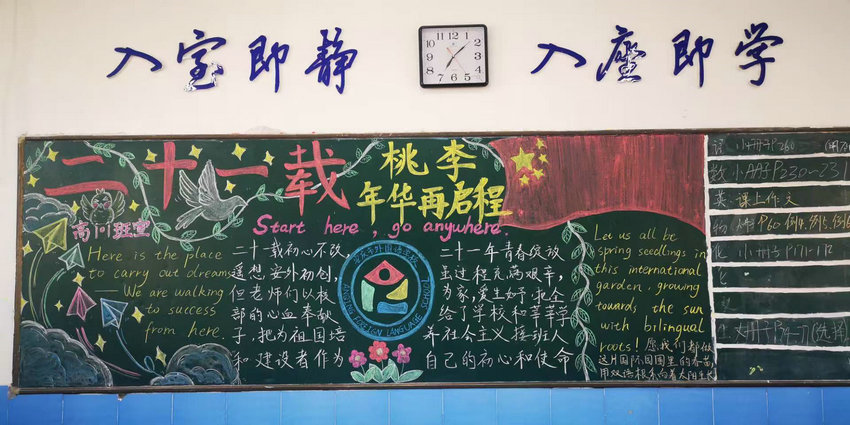 入室即静
入座即学
二十一载
桃李
年华再启程
Start here, go anywhere.
高一1班宣
Here is the place
to carry out dreams
— We are walking
to success
from here
二十一载初心不改,
遥想安外初创,
但老师们以极
部的心血奉献
子,把为祖国培
和建设者作为
ANQING FOREIGN LANGUAGE SCHOOL
二十一年青春绽放
虽过程充满艰辛,
为家,爱生如子,把全
给了学校和莘莘学
养社会主义接班人
自己的初心和使命
Let us all be
spring seedlings in
this international
garden, growing
towards the sun
with bilingual
roots! 愿我们都做
这片国际园圃里的春苗,
用双语根系向着太阳生长
语 小册子P260
数 小册子P230-231
英 课上作文
物
化 小册子P171-172
生 大册子P74-77(选择)